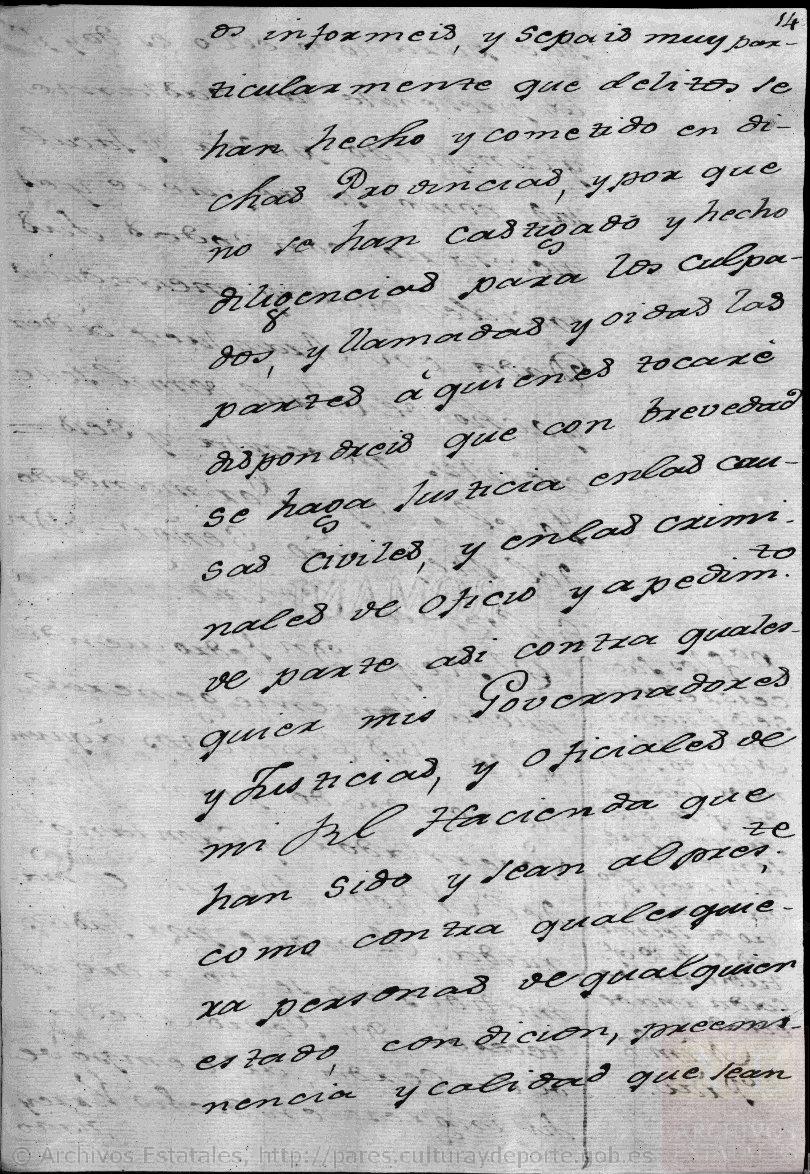 14
os informeis, y sepais muy par-
ticularmente que delitos se
han hecho y cometido en di-
chas Provincias, y por que
no se han castigado y hecho
diligencias para los culpa-
dos, y llamadas y oidas las
partes á quienes tocare
dispondreis que con brevedad
se haga Justicia enlas cau-
sas civiles, y enlas crimi-
nales de oficio y a pedim.to
de parte asi contra quales-
quier mis Governadores
y Justicias, y oficiales de
mi Rl Hacienda que
han sido y sean al pres.te
como contra qualesquie-
ra personas de qualquier
estado, condicion, preemi-
nencia y calidad que sean
© Archivos Estatales, http://pares.culturaydeporte.gob.es